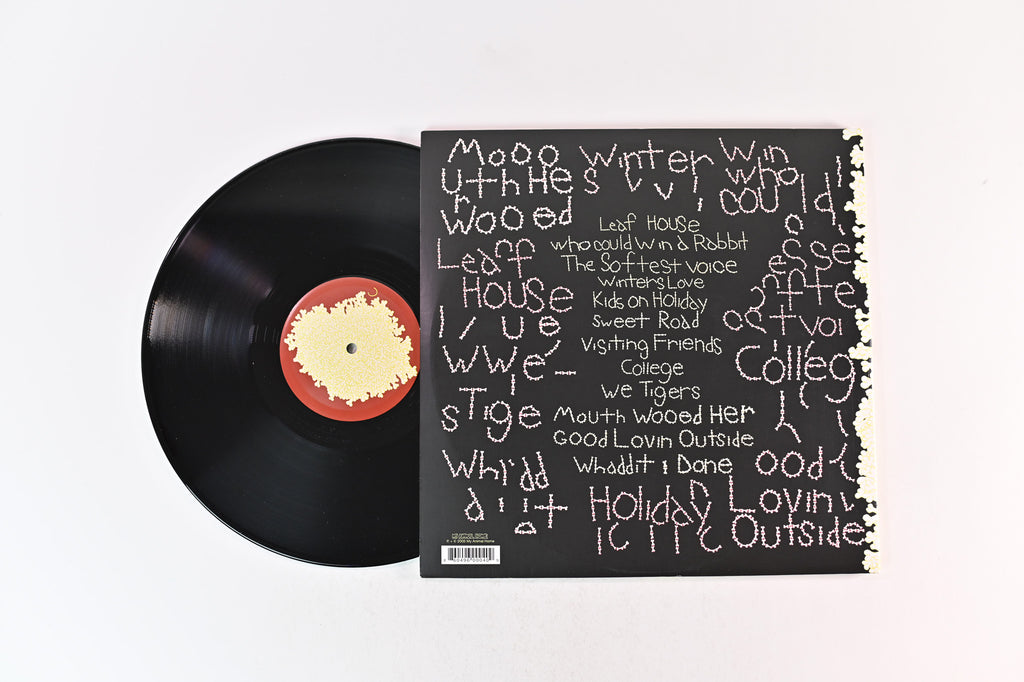 Mooo Winter Win
uthHe s v v i who
wooed could
Leaf House
who could win a Rabbit
The Softest voice
Winters Love
Kids on Holiday
Sweet Road
Visiting Friends
College
We Tigers
Mouth Wooed Her
Good Lovin Outside
Whaddit i Done
Leaff
House
l/ue
WWe'-
sTige
Whi'dd
diit
e
o
esse
ofte
ostvoi
College
ood
Holiday Lovin
Outside
My Animal Home